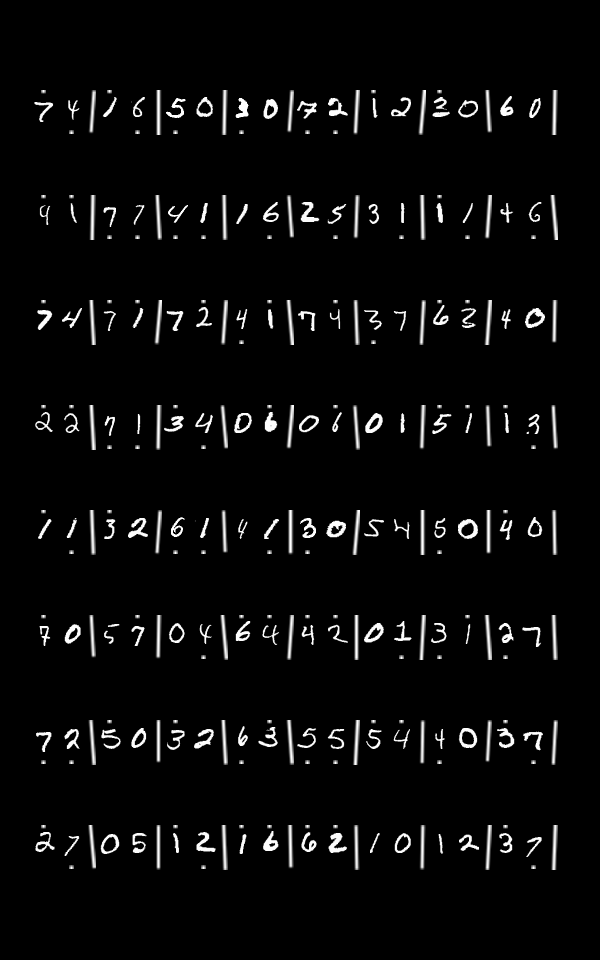 7 4 | 1 6 | 5 0 | 3 0 | 7 2 | 1 2 | 3 0 | 6 0 |
9 1 | 7 7 | 4 1 | 1 6 | 2 5 | 3 1 | 1 1 | 4 6 |
7 4 | 7 1 | 7 2 | 4 1 | 7 4 | 3 7 | 6 3 | 4 0 |
2 2 | 7 1 | 3 4 | 0 6 | 0 6 | 0 1 | 5 1 | 1 3 |
1 1 | 3 2 | 6 1 | 4 1 | 3 0 | 5 4 | 5 0 | 4 0 |
7 0 | 5 7 | 0 4 | 6 4 | 4 2 | 0 1 | 3 1 | 2 7 |
7 2 | 5 0 | 3 2 | 6 3 | 5 5 | 5 4 | 4 0 | 3 7 |
2 7 | 0 5 | 1 2 | 1 6 | 6 2 | 1 0 | 1 2 | 3 7 |